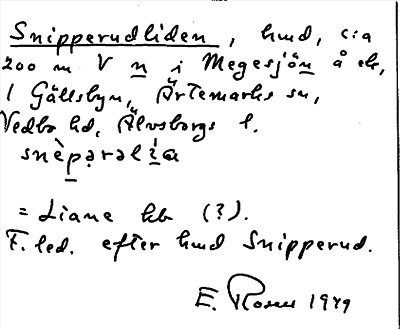 Snipperudliden, hmd, c:a
200 m V n i Megesjön å ek,
1 Gällsbyn, Ärtemarks sn,
Vedbo hd, Älvsborgs l.
snèparalia
= Liane hb (?).
F. led. efter hmd Snipperud.
E. Rosén 1949